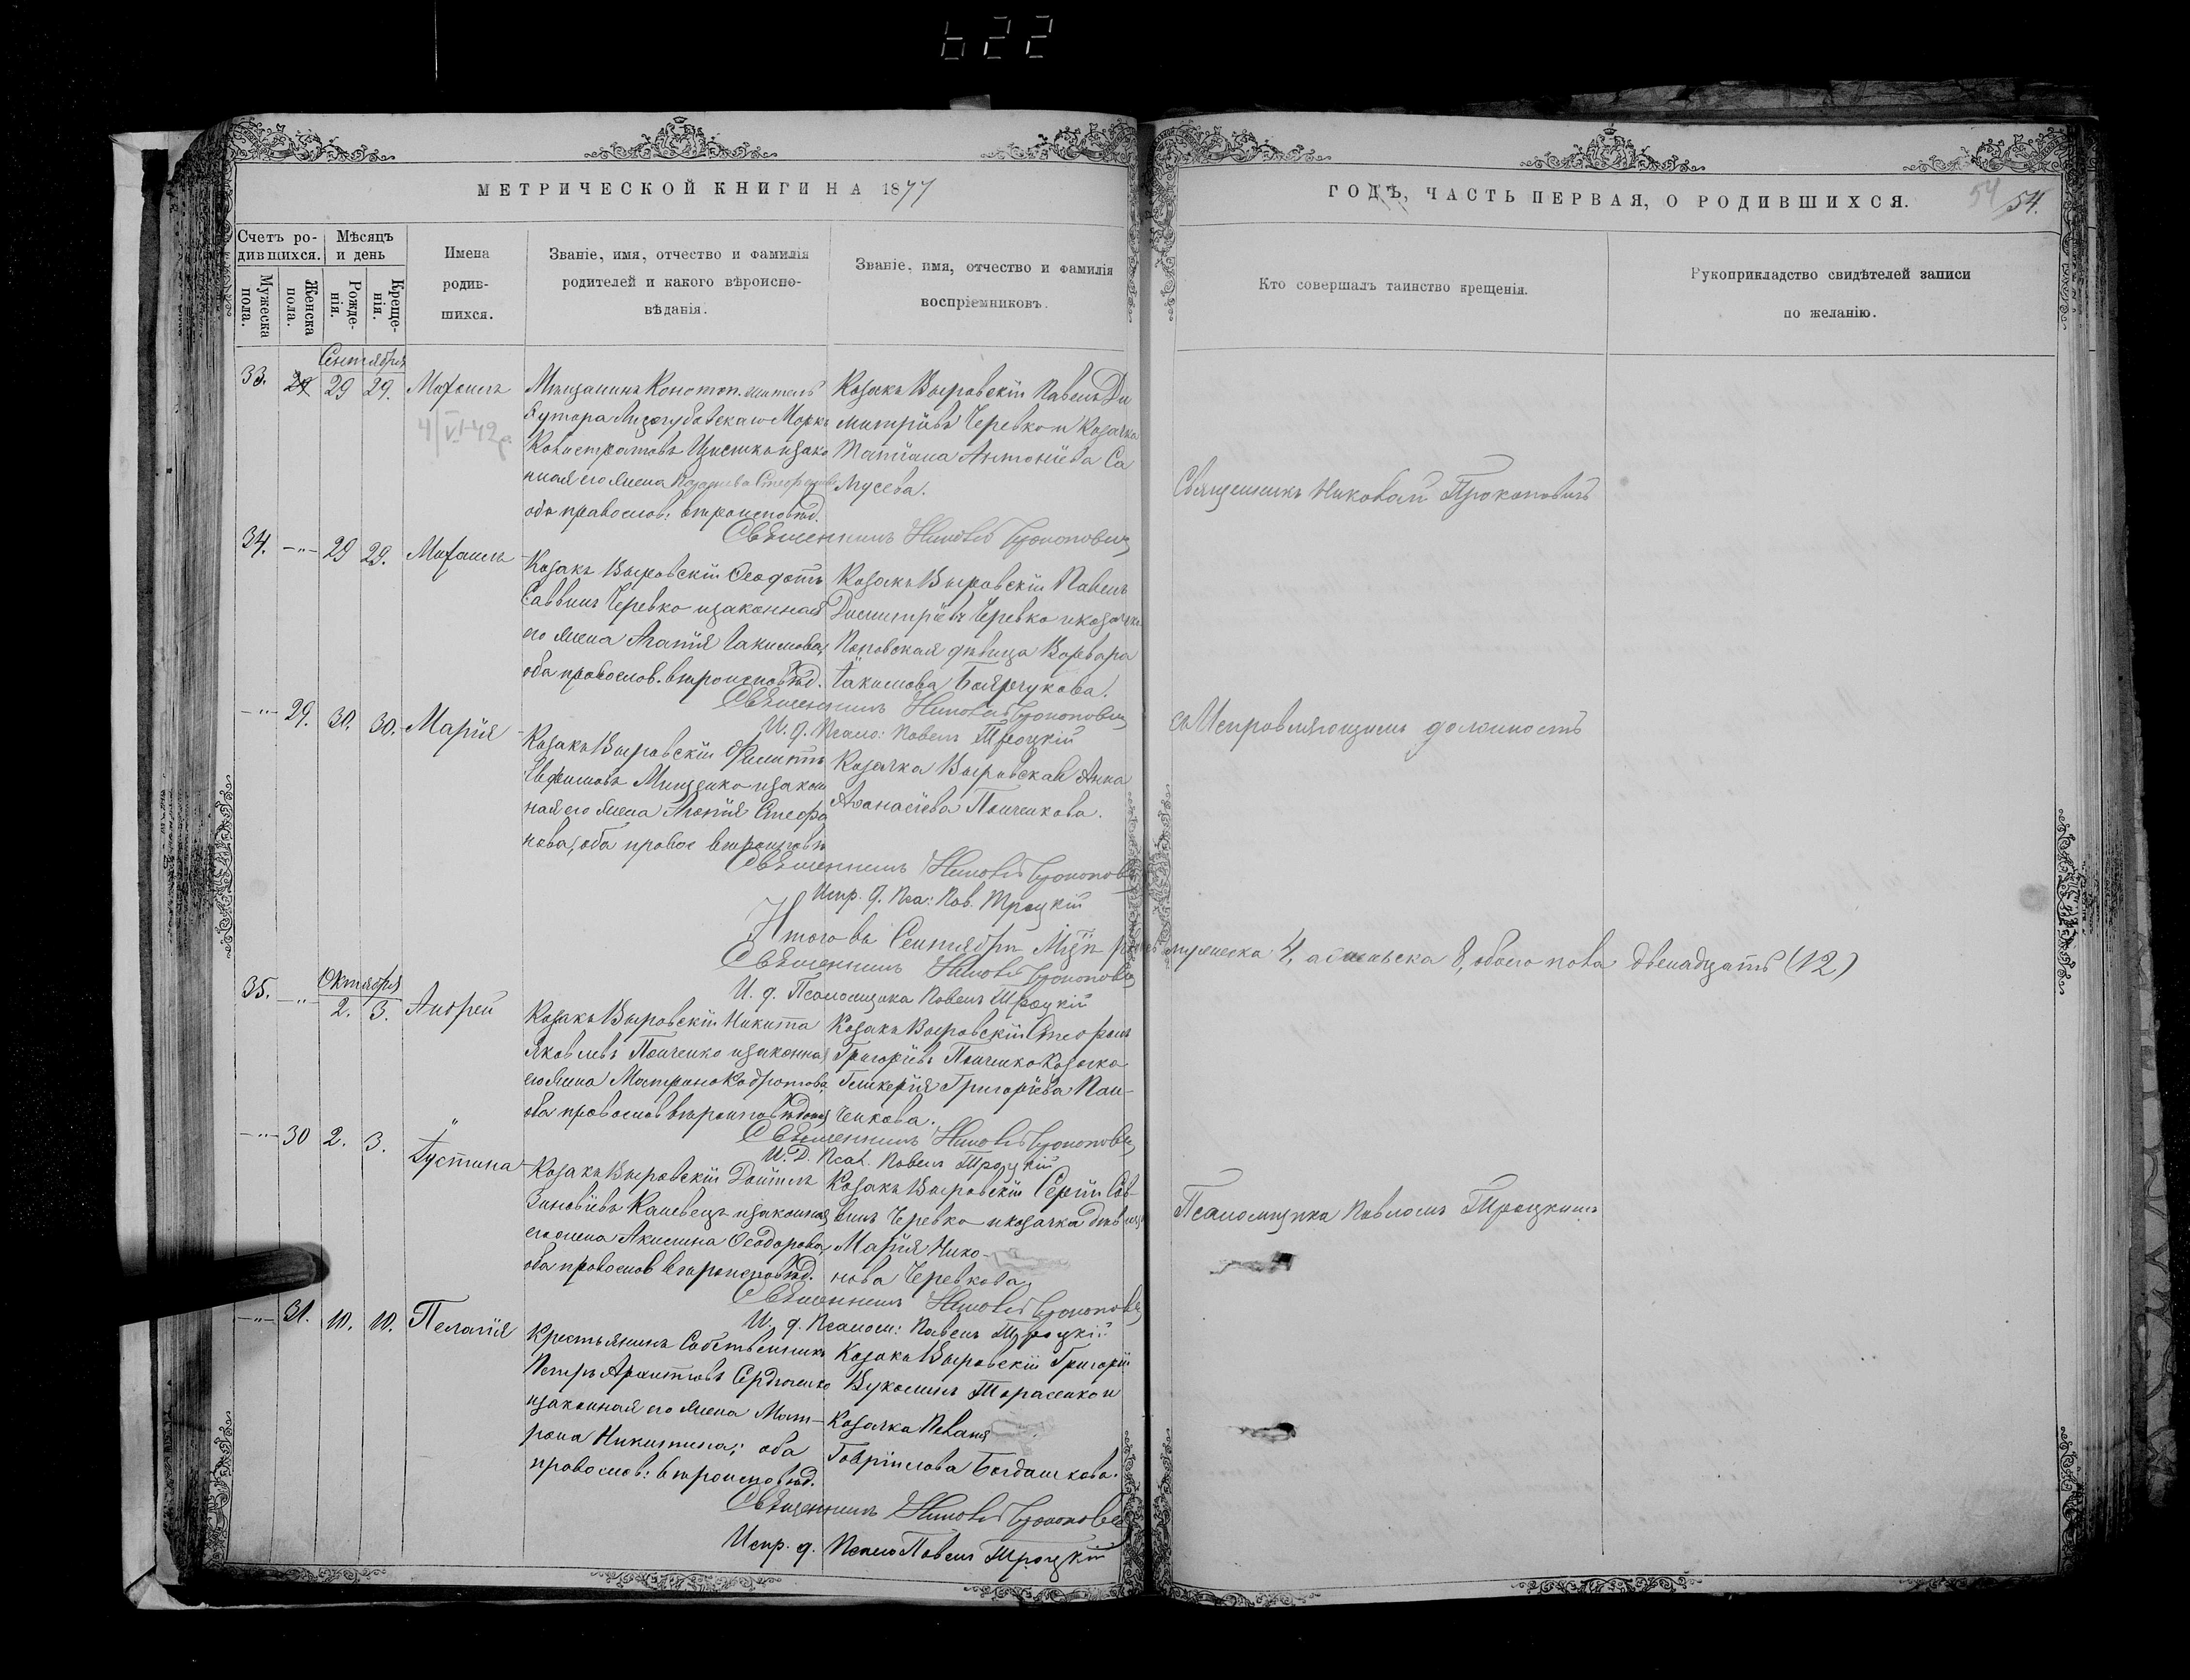 622
МЕТРИЧЕСКОЙ КНИГИ НА 1877
ГОДЪ, ЧАСТЬ ПЕРВАЯ, О РОДИВШИХСЯ.
54
54.
Счетъ ро-
дившихся.
Мѣсяцъ
и день
Мужеска
пола.
Женска
пола.
Рожде-
нія.
Креще-
нія.
Имена
родив-
шихся.
Званіе, имя, отчество и фамилія
родителей и какого вѣроиспо-
вѣданія.
Званіе, имя, отчество и фамилія
воспріемниковъ.
Кто совершалъ таинство крещенія.
Рукоприкладство свидѣтелей записи
по желанію.
Сентября
33. 29 29. Михаилъ
4/VI-42
Мѣщанинъ Коното­п. житель
хутора Лизогубовскаго Марко
Калистратовъ и закон
ная его жена Стефанова
оба православ: вѣроисповѣд.
Козакъ Выровскій Павелъ Ди
митріевъ Черевко и Козачка
Татіана Антоніева Са
мусева.
Священникъ Николай Прокоповичъ
Священникъ Николай Прокоповичъ
34. -"- 29 29. Михаилъ
Козакъ Выровскій Ѳеодотъ
Саввинъ Черевко и законная
его жена Агапія Іакимова,
оба православ. вѣроисповѣд.
Козакъ Выровскій Павелъ
Димитріевъ Черевко и козачья
Поповская дѣвица Варвара
Іакимова Боярчукова.
Священникъ Николай Прокоповичъ
И. д. Псало: Павелъ Троцкій
-"- 29. 30. 30. Марія
Козакъ Выровскій Филиппъ
Евфимовъ Мищенко и закон
ная его жена Агапія Стефа
нова, оба правос вѣроисповѣ
Козачка Выровская Анна
Аѳанасіева Панченкова.
съ Исправляющимъ должность
Священникъ Николай Прокоповичъ
Испр. д. Пса: Пав. Троцкій
Итого въ Сентябрѣ М-цѣ мужеска 4, а женска 8, обоего пола двенадцать (12)
Священникъ Николай Прокоповичъ
И. д. Псаломщика Павелъ Троцкій
Октября
35. -"- 2. 3. Андрей
Козакъ Выровскій Никита
Яковлевъ Панченко и законная
его жена Матрона Кодратова,
оба православ вѣроисповѣданія
Козакъ Выровскій Стефанъ
Григоріевъ Панченко Козачка
Гликерія Григоріева Пан-
ченкова.
Священникъ Николай Прокоповичъ
И. Д. Псал. Павелъ Троцкій
-"- 30 2. 3. Іустина
Козакъ Выровскій Даніилъ
Зиновіевъ Каневецъ и законная
его жена Акилина Ѳеодорова,
оба православ вѣроисповѣд.
Козакъ Выровскій Сергій Сав-
винъ Черевко и козачка дѣвица
Марія Нико-
нова Черевкова.
Псаломщика Павломъ Троцкимъ
Священникъ Николай Прокоповичъ
И. д. Псалом: Павелъ Троцкій
-"- 31. 10. 10. Пелагія
Крестьянинъ Собственникъ
Петръ Архиповъ Сердюченко
и законная его жена Мат-
рона Никитина; оба
православ: вѣроисповѣд.
Козакъ Выровскій Григорій
Вуколинъ Тарасенко и
Козачка Пелагія
Гавріилова Богдашкова.
Священникъ Николай Прокоповичъ
Испр. д. Псало Павелъ Троцкій